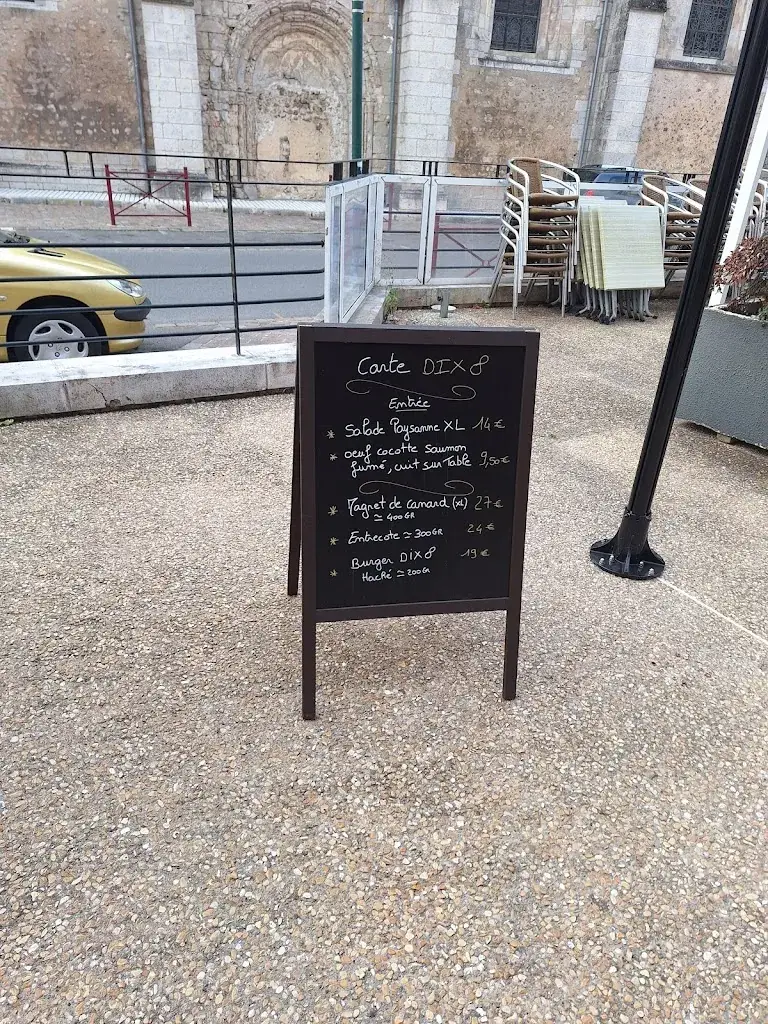 Carte DIX 8
Entrée
* Salade Paysanne XL 14€
* oeuf cocotte saumon
fumé, cuit sur Table 9,50€
* Magret de canard (XL) 27€
≃ 400GR
* Entrecote ≃ 300GR 24€
* Burger DIX 8 19€
Haché ≃ 200Gr